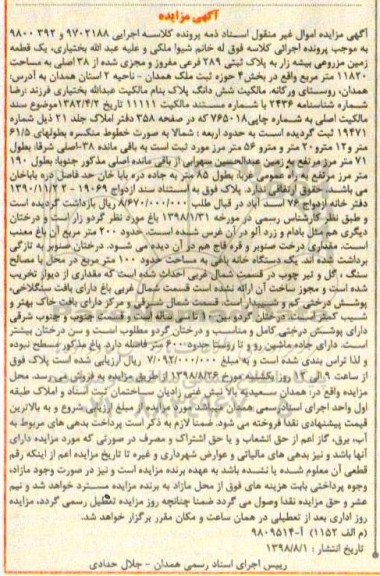 آگهی مزایده
آگهی مزایده اموال غیر منقول اسناد ذمه پرونده کلاسه اجرایی ۹۷۰۲۱۸۸ و ۹۸۰۰۳۹۲
به موجب پرونده اجرائی کلاسه فوق له خانم شیوا ملکی و علیه عبد الله بختیاری، یک قطعه
زمین مزروعی بیشه زار به پلاک ثبتی ۲۸۹ فرعی مفروز و مجزی شده از ۳۸ اصلی به مساحت
۱۱۸۲۰ متر مربع واقع در بخش ۴ حوزه ثبت ملک همدان - ناحیه ۲ استان همدان به آدرس:
همدان، روستای ورکانه. مالکیت شش دانگ پلاک بنام مالکیت عبدالله بختیاری فرزند رضا
شماره شناسنامه ۲۴۳۶ با شماره مستند مالکیت ۱۱۱۱۱ تاریخ ۱۳۸۲/۴/۲ موضوع سند
مالکیت اصلی به شماره چاپی ۷۶۵۰۱۸ که در صفحه ۳۵۸ دفتر املاک جلد ۲۱ ذیل شماره
۱۹۴۷۱ ثبت گردیده است به حدود اربعه: شمالا به صورت خطوط منکسره بطولهای ۶۱/۵
متر و ۱۲ متر و ۲۰ متر و مترو ۵۶ متر مرز مورد ثبت است به باقی مانده ۳۸-اصلی شرقا: بطول
۷۱ متر مرز مرتفع به زمین عبدالحسین سهرابی از باقی مانده اصلی مذکور جنوبا: بطول ۱۹۰
متر مرز مرتفع به راه عمومی غربا: بطول ۸۵ متر به جاده دره بابا خان حد فاصل دره باباخان
می باشد. حقوق ارتفاقی ندارد. پلاک فوق به استناد سند ازدواج ۱۹۰۶۹ - ۱۳۹۰/۱۱/۲۲
دفتر خانه ازدواج ۷۶ اسد آباد در قبال طلب ۸/۶۷۰/۰۰۰/۰۰۰ ریال بازداشت گردیده است
و طبق نظر کارشناس رسمی در مورخه ۱۳۹۸/۱/۳۱ باغ مورد نظر گردو زار است و درختان
دیگری هم مثل بادام و زرد آلو در آن غرس شده است. حدود ۲۰۰ متر مربع آن باغ معنب
است. مقداری درخت صنوبر و قره قاج هم در آن دیده می شود. درختان صنوبر به تازگی
برداشت شده اند. یک دستگاه خانه باغی به مساحت حدود ۱۰۰ متر مربع در محل با مصالح
سنگ، گل و تیر چوب در قسمت شمال غربی احداث شده است که مقداری از دیوار تخریب
شده است و مجوز ساخت آن ارائه نشده است قسمت شمال غربی باغ دارای بافت سنگلاخی
پوشش درختی کم و شیبدار است. قسمت شمال شرقی و مرکز دارای بافت خاک بهتر و
دارای پوشش درختی کامل و مناسب و درختان گردو مطلوب است و سن درختان بیشتر
است. دارای جاده ماشین رو و تا روستا حدود ۶۰۰ متر فاصله دارد. باغ مذکور مسطح نبوده
و لذا تراس بندی شده است و به مبلغ ۷/۰۹۲/۰۰۰/۰۰۰ ریال ارزیابی شده است پلاک فوق
از ساعت ۹ الی ۱۲ روز یکشنبه مورخ ۱۳۹۸/۸/۲۶ از طریق مزایده به فروش می رسد. محل
مزایده واقع در: همدان سعیدیه بالا نبش فنی زادیان - ساختمان ثبت اسناد و املاک طبقه
اول واحد اجرای اسناد رسمی همدان می باشد مورد مزایده از مبلغ ارزیابی شروع و به بالاترین
قیمت پیشنهادی نقدا فروخته می شود. ضمنا لازم به ذکر است پرداخت بدهی های مربوط به
آب، برق، گاز اعم از حق انشعاب و یا حق اشتراک و مصرف در صورتی که مورد مزایده دارای
آنها باشد و نیز بدهی های مالیاتی و عوارض شهرداری و غیره تا تاریخ مزایده اعم از اینکه رقم
قطعی آن معلوم شده یا نشده باشد به عهده برنده مزایده است و نیز در صورت وجود مازاد،
وجوه پرداختی بابت هزینه های فوق از محل مازاد به برنده مزایده مسترد خواهد شد و نیم
عشر و حق مزایده نقدا وصول می گردد ضمنا چنانچه روز مزایده تعطیل رسمی گردد، مزایده
روز اداری بعد از تعطیلی در همان ساعت و مکان مقرر برگزار خواهد شد.
(م الف ۱۱۵۲) آ-۹۸۰۹۵۱۴
تاریخ انتشار: ۱۳۹۸/۸/۱
رییس اجرای اسناد رسمی همدان - جلال حدادی